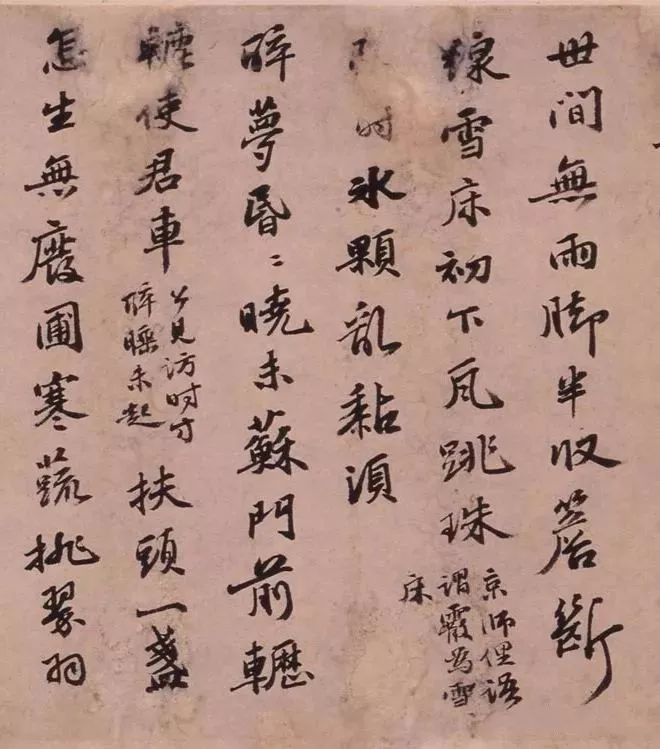 世間無雨脚半收簷斷
線雪床初下瓦跳珠
京師俚語
謂霰爲雪
床
时冰顆乱黏湏
醉夢昏〻曉未蘇門前轣
轆使君車
公見訪时方
醉睡未起
扶頭一盞
怎生無廢圃寒蔬挑翠羽